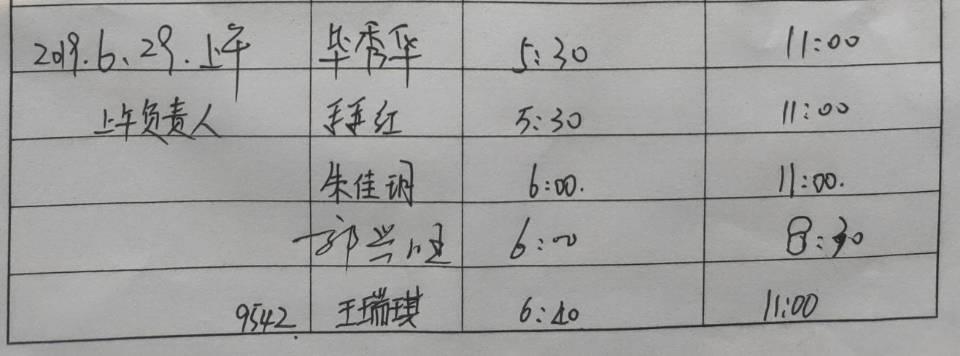 2019.6.29.上午 毕秀华 5:30 11:00
上午负责人 红 5:30 11:00
朱佳玥 6:00. 11:00.
郭兴旺 6:00 8:30
9542 王瑞琪 6:40 11:00